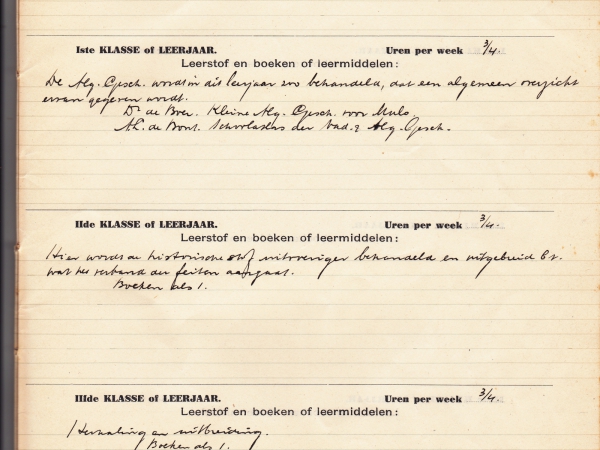 Iste KLASSE of LEERJAAR. Uren per week 3/4.
Leerstof en boeken of leermiddelen:
De Alg. Gesch. wordt in dit leerjaar zoo behandeld, dat een algemeen overzicht
ervan gegeven wordt.
Dr de Boer. Kleine Alg. Gesch. voor Mulo.
Th. de Bont. Schoolatlas der Vad. & Alg. Gesch.
IIde KLASSE of LEERJAAR. Uren per week 3/4.
Leerstof en boeken of leermiddelen:
Hier wordt de historische stof uitvoeriger behandeld en uitgebreid
wat het verband der feiten aangaat.
Boeken als 1.
IIIde KLASSE of LEERJAAR. Uren per week 3/4.
Leerstof en boeken of leermiddelen:
Herhaling en uitbreiding.
Boeken als 1.